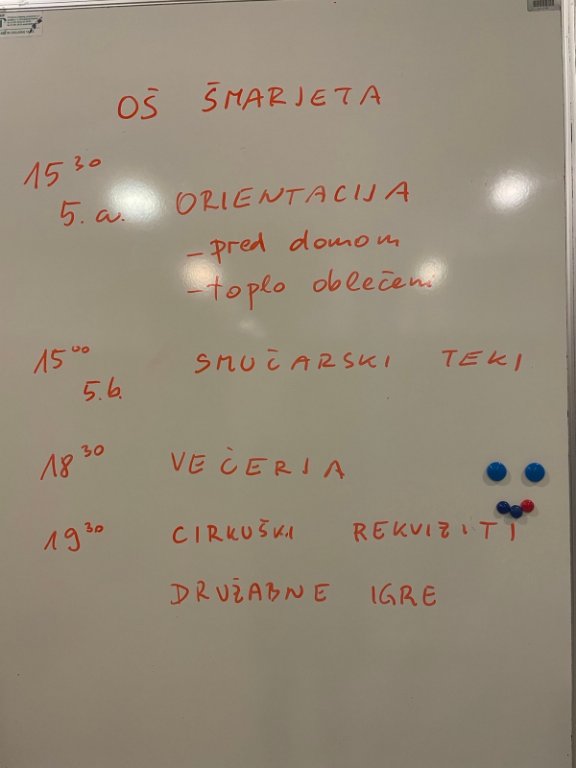 OŠ ŠMARJETA
15³⁰
5. a. ORIENTACIJA
- pred domom
- toplo oblečeni
15⁰⁰ SMUČARSKI TEKI
5.b.
18³⁰ VEČERJA
19³⁰ CIRKUŠKI REKVIZITI
DRUŽABNE IGRE